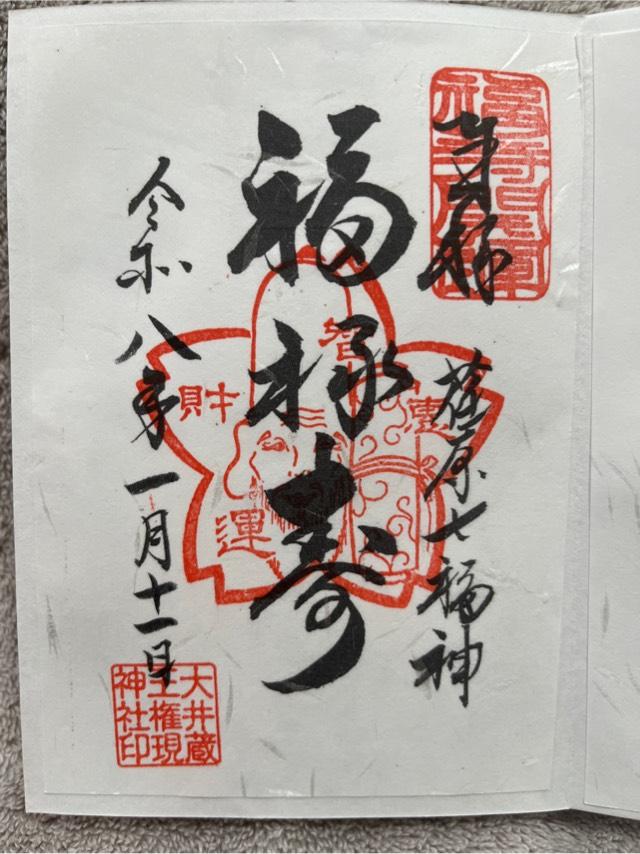 奉拝
荏原七福神
福禄寿
智
恵
財
運
令和八年一月十一日
大井蔵
王権現
神社印